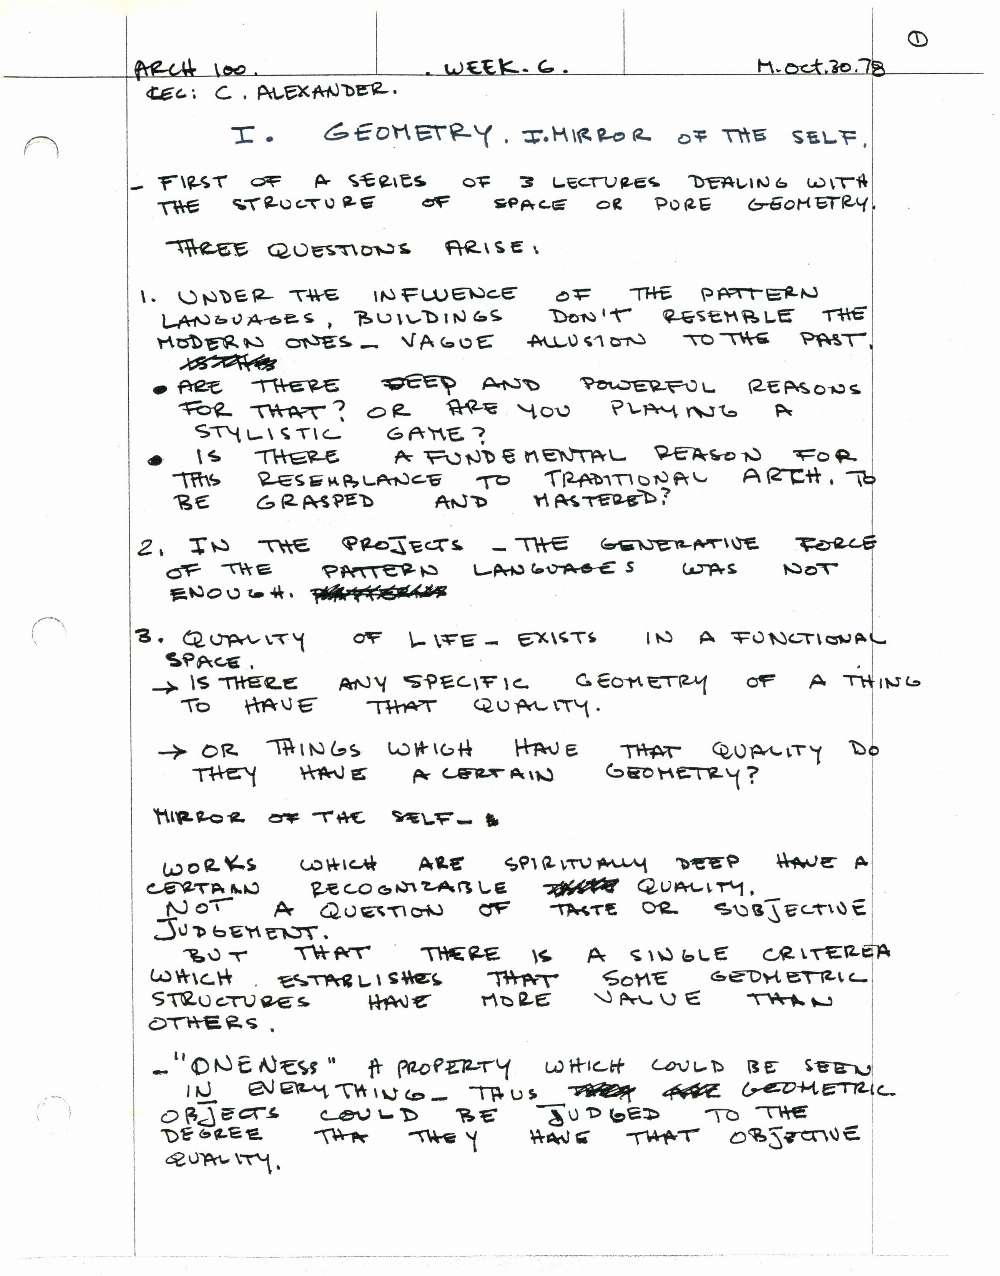 ①
ARCH 100. . WEEK. 6. M. Oct. 30. 78
LEC: C. ALEXANDER.
I. GEOMETRY. I. MIRROR OF THE SELF.
- FIRST OF A SERIES OF 3 LECTURES DEALING WITH
THE STRUCTURE OF SPACE OR PURE GEOMETRY.
THREE QUESTIONS ARISE:
1. UNDER THE INFLUENCE OF THE PATTERN
LANGUAGES, BUILDINGS DON'T RESEMBLE THE
MODERN ONES - VAGUE ALLUSION TO THE PAST.
• ARE THERE DEEP AND POWERFUL REASONS
FOR THAT? OR ARE YOU PLAYING A
STYLISTIC GAME?
• IS THERE A FUNDEMENTAL REASON FOR
THIS RESEMBLANCE TO TRADITIONAL ARCH. TO
BE GRASPED AND MASTERED?
2. IN THE PROJECTS - THE GENERATIVE FORCE
OF THE PATTERN LANGUAGES WAS NOT
ENOUGH.
3. QUALITY OF LIFE - EXISTS IN A FUNCTIONAL
SPACE.
→ IS THERE ANY SPECIFIC GEOMETRY OF A THING
TO HAVE THAT QUALITY.
→ OR THINGS WHICH HAVE THAT QUALITY DO
THEY HAVE A CERTAIN GEOMETRY?
MIRROR OF THE SELF -
WORKS WHICH ARE SPIRITUALLY DEEP HAVE A
CERTAIN RECOGNIZABLE QUALITY.
NOT A QUESTION OF TASTE OR SUBJECTIVE
JUDGEMENT.
BUT THAT THERE IS A SINGLE CRITEREA
WHICH ESTABLISHES THAT SOME GEOMETRIC
STRUCTURES HAVE MORE VALUE THAN
OTHERS.
- "ONENESS" A PROPERTY WHICH COULD BE SEEN
IN EVERYTHING - THUS GEOMETRIC
OBJECTS COULD BE JUDGED TO THE
DEGREE THA THEY HAVE THAT OBJECTIVE
QUALITY.